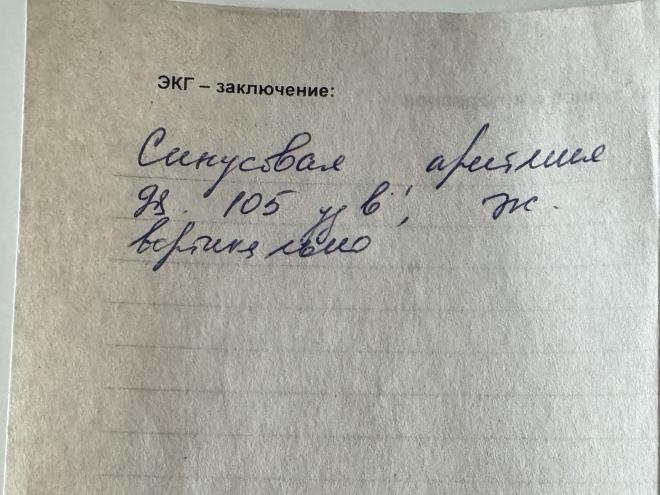 ЭКГ – заключение:
Синусовая аритмия
105 уд в 1',
вертикально